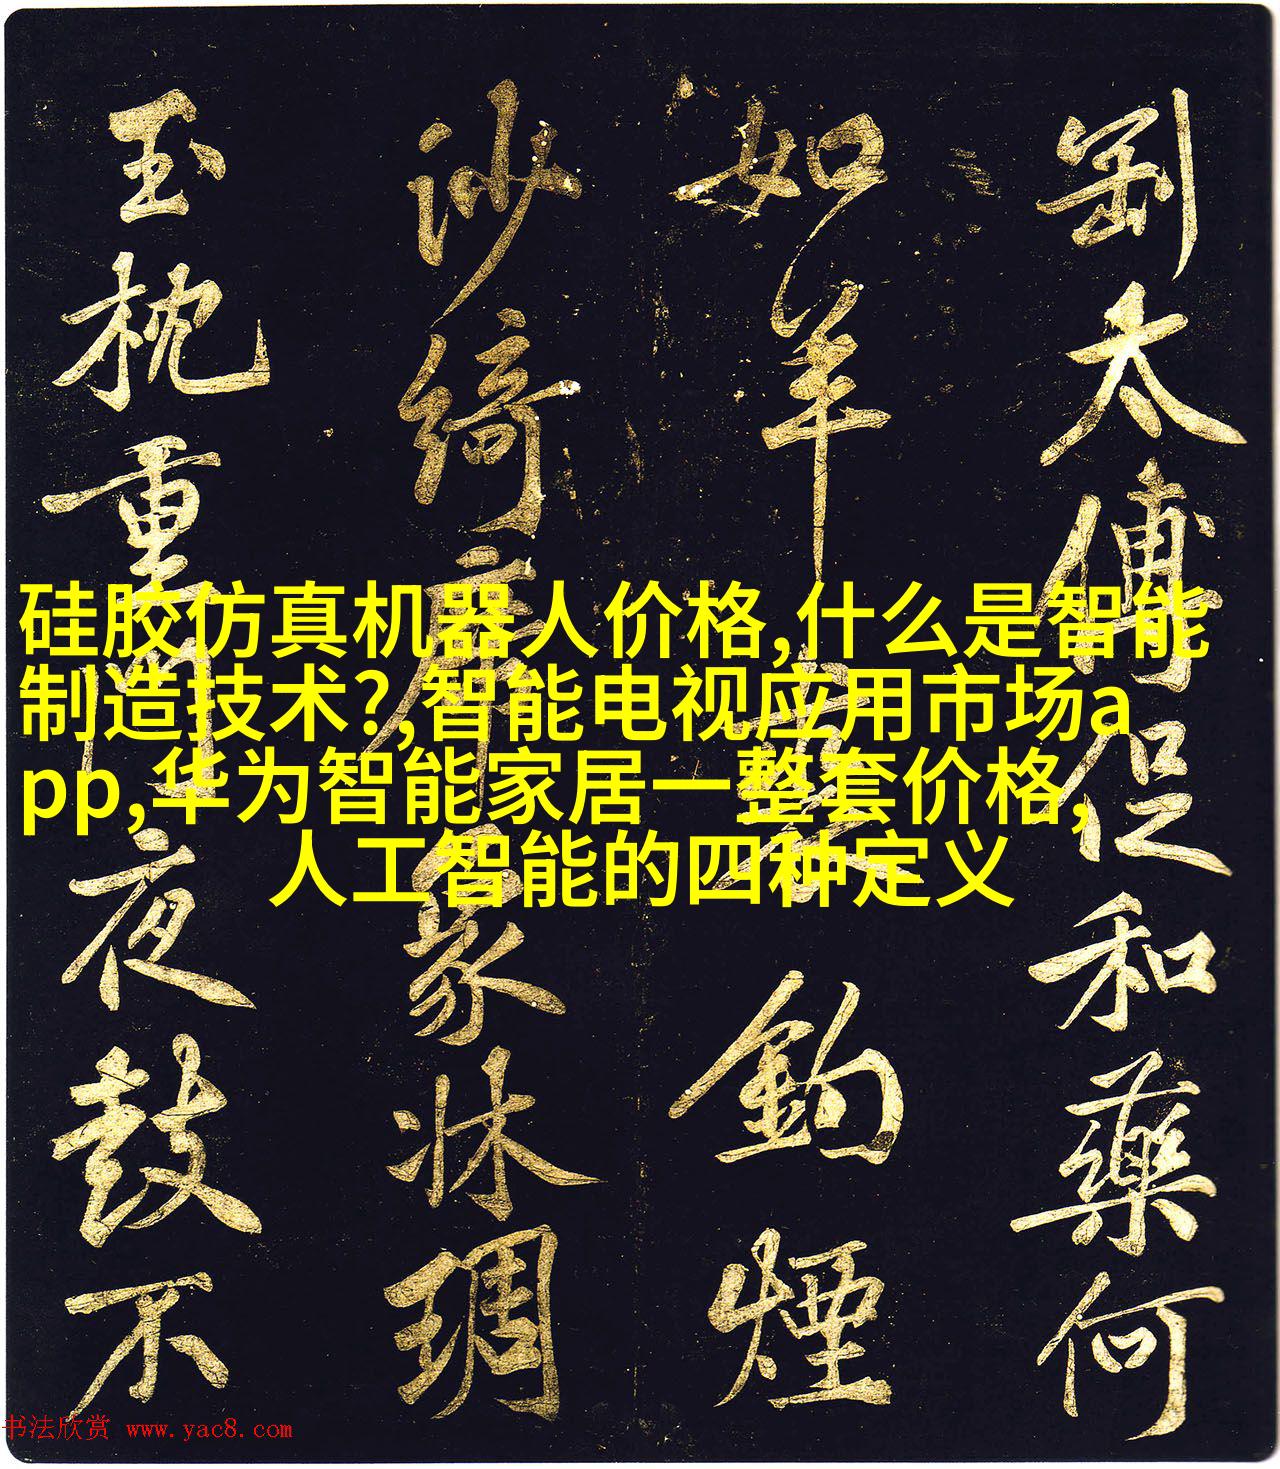 硅胶仿真机器人价格,什么是智能
制造技术?,智能电视应用市场a
pp,华为智能家居一整套价格,
人工智能的四种定义
劉太傅促和藥何
如羊鉤煙
沙綺席象牀琱
玉枕重門夜鼓不
书法欣赏 www.yac8.com